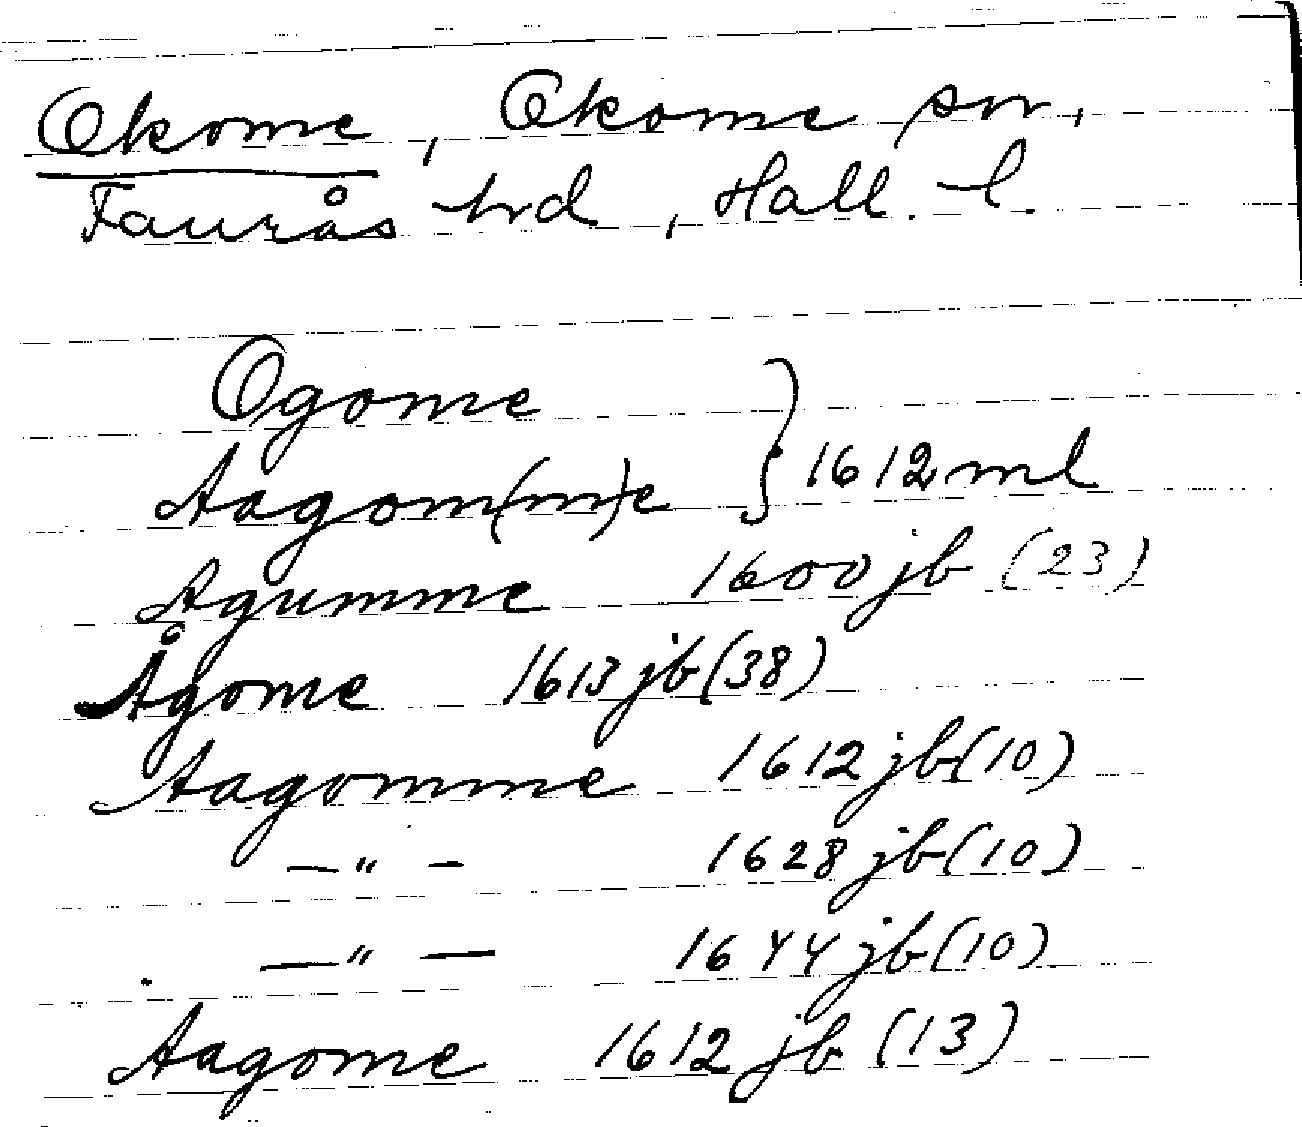 Okome, Okome sn,
Faurås hrd, Hall. l.
Ogome
Aagom(m)e } 1612 ml
Agumme 1600 jb (23)
Ågome 1613 jb (38)
Aagomme 1612 jb (10)
—"— 1628 jb (10)
—"— 1644 jb (10)
Aagome 1612 jb (13)